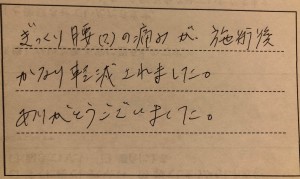 ぎっくり腰(2)の痛みが、施術後
かなり軽減されました。
ありがとうございました。